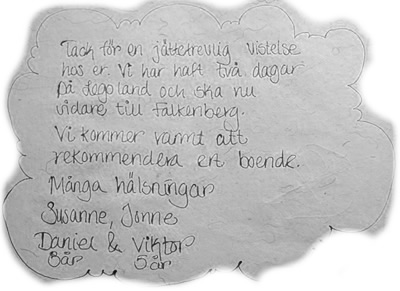 Tack för en jättetrevlig vistelse
hos er. Vi har haft två dagar
på legoland och ska nu
vidare till Falkenberg.
Vi kommer varmt att
rekommendera ert boende.
Många hälsningar
Susanne, Jonne,
Daniel & Viktor
8år 5år